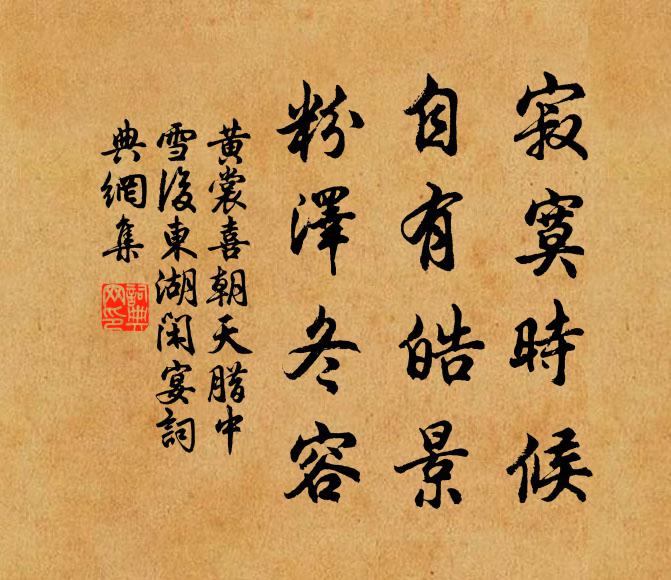 寂寞時候
自有皓景
粉澤冬容
黃裳喜朝天腊中
雪後東湖閑宴詞
典網集
詞典
網印